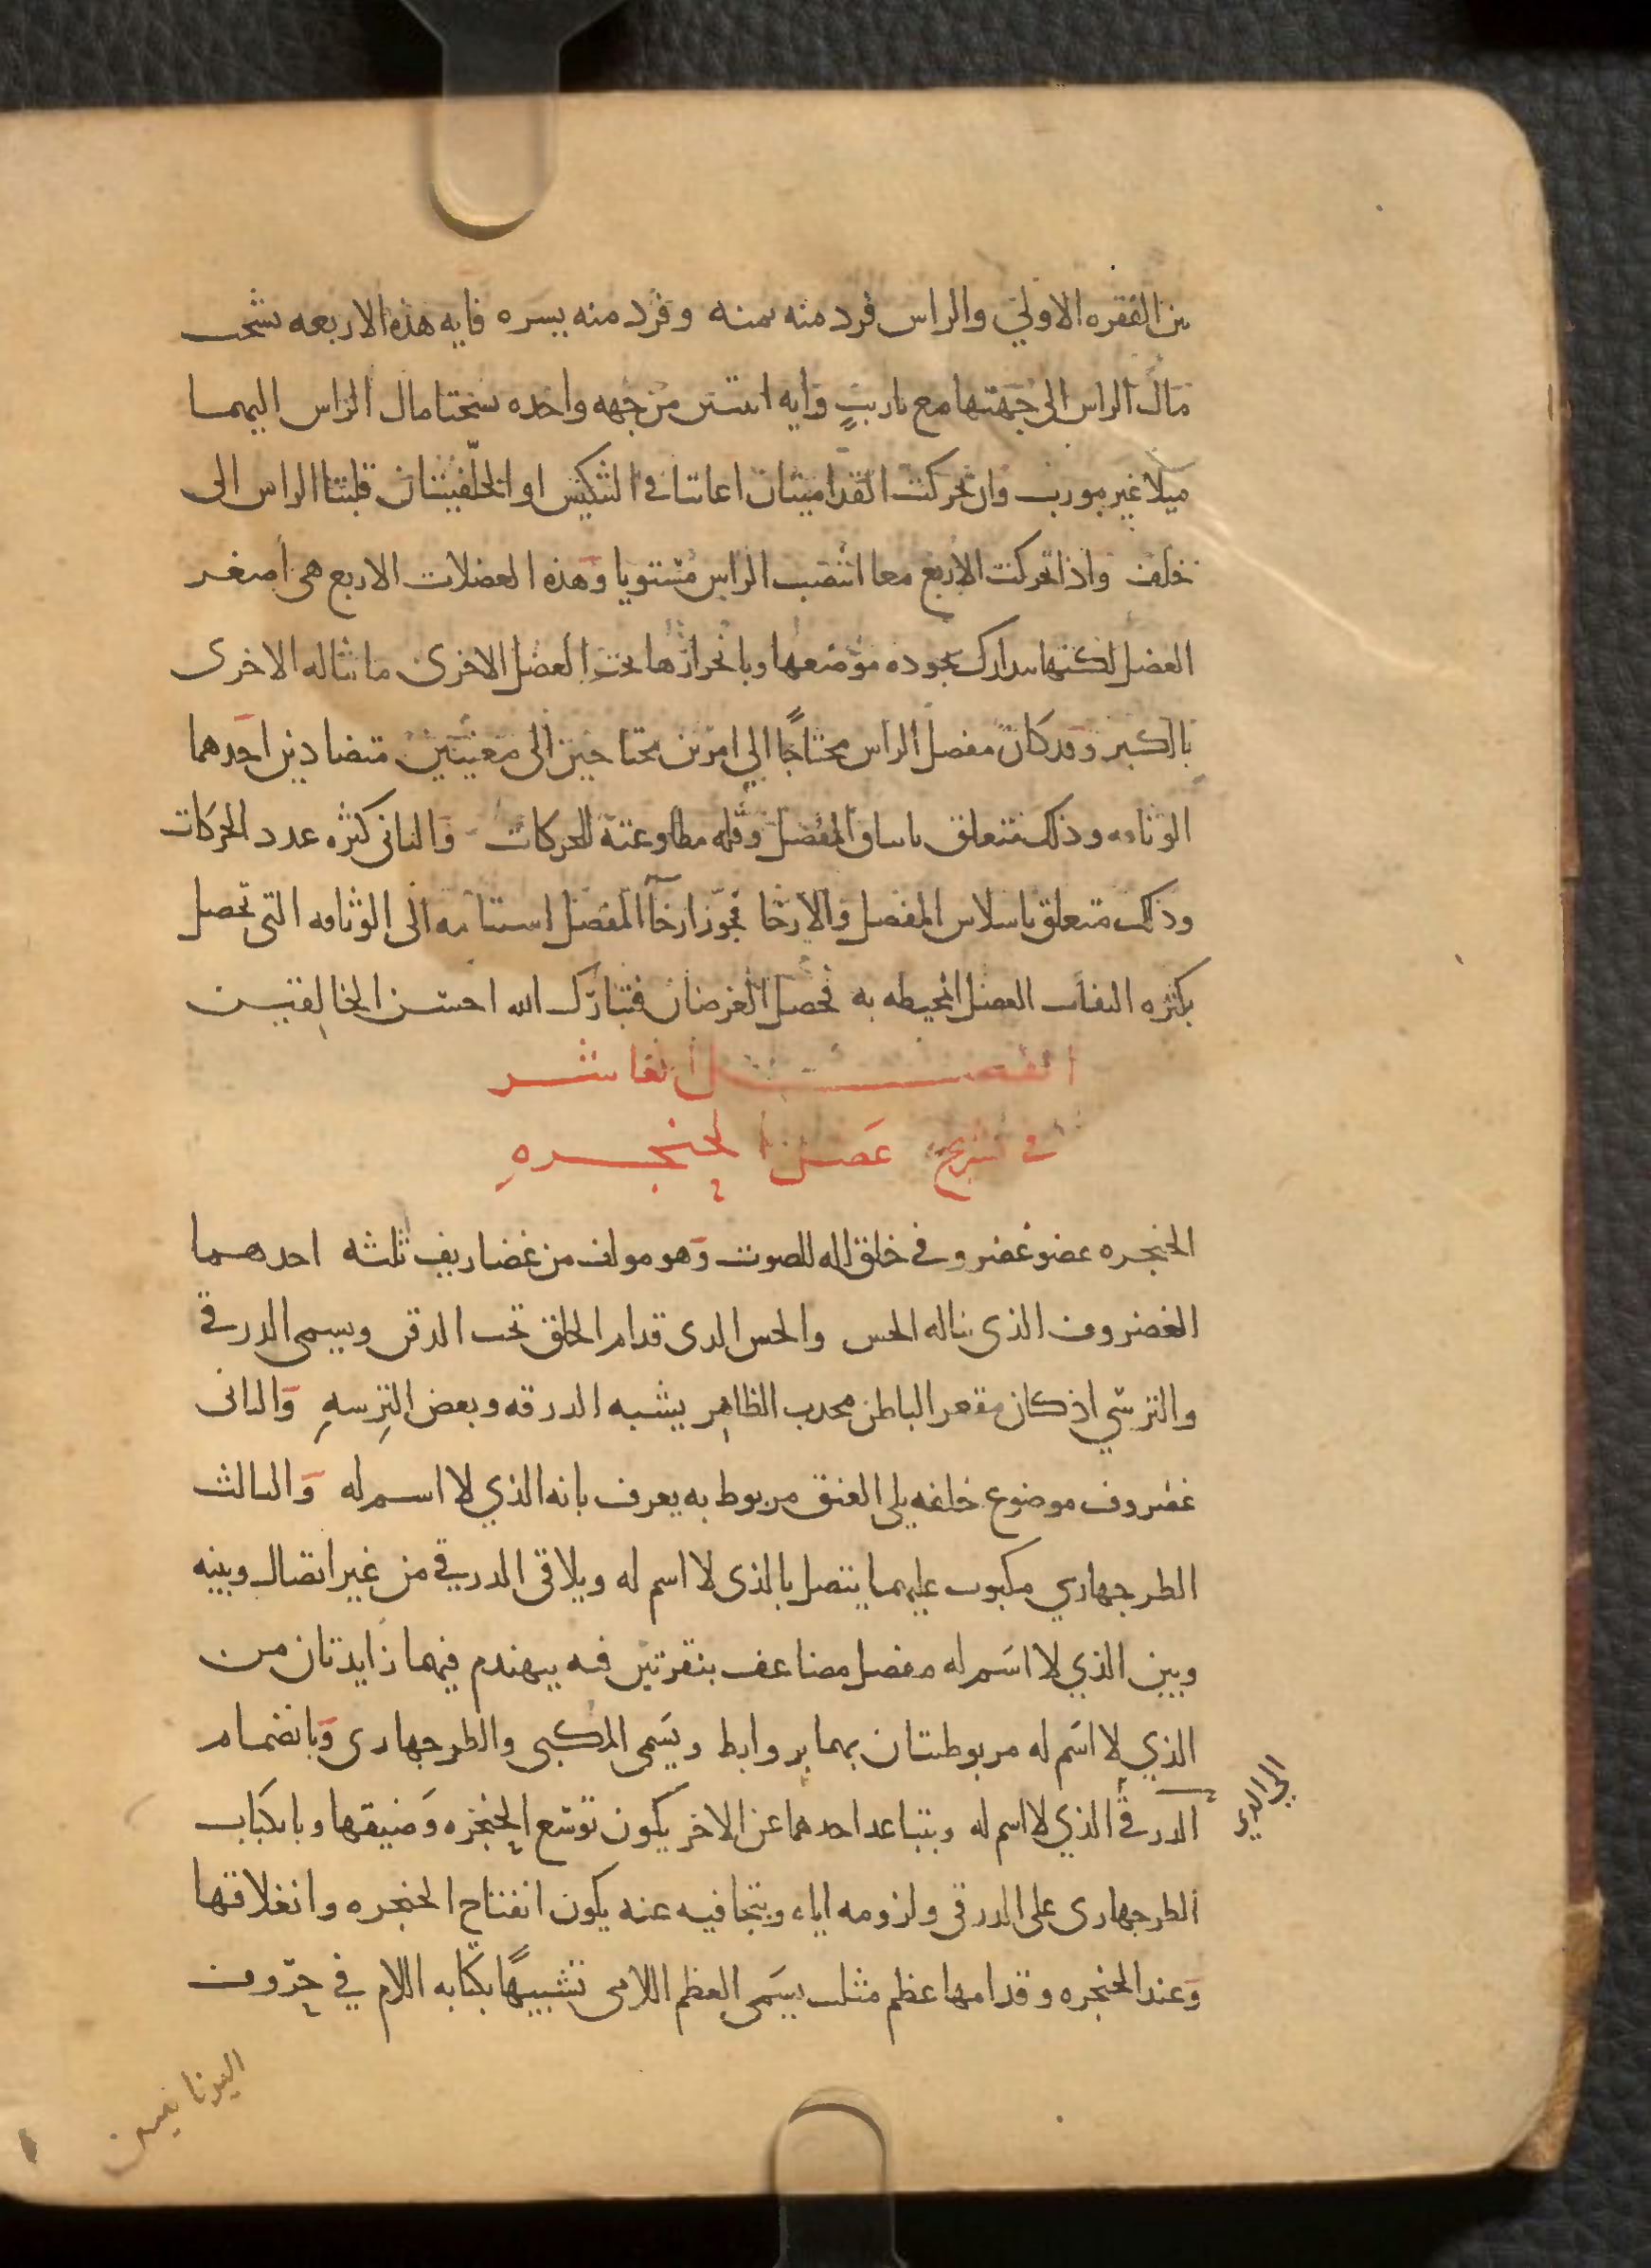 بين الفقره الاولي والراس فرد منه يمنه وفرد منه يسره فايه هذه الاربعه تشنجت
مال الراس الى جهتها مع تاريب وايه اثنتين من جهه واحده تشنجتا مال الراس اليهما
ميلا غير مورب وان تحركت القداميتان اعانتا في التنكيس او الخلفيتان قلبتا الراس الى
خلف واذا تحركت الاربع معا انتصب الراس مستويا وهذه العضلات الاربع هي اصغر
العضل لكنها تتدارك بجوده موضعها وبانحرازها تحت العضل الاخرى ما تناله الاخرى
بالكبر وقد كان مفصل الراس محتاجًا الي امرين محتاجين الى معنيين متضادين احدهما
الوثاقه وذلك متعلق بايثاق المفصل وقله مطاوعته للحركات والثانى كثره عدد الحركات
وذلك متعلق باسلاس المفصل والارخا فجوز ارخآ المفصل استنامه الى الوثاقه التى تحصل
بكثره التفاف العضل المحيطه به فحصل الغرضان فتبارك الله احسن الخالقين
الفصل العاشر
فى تشريح عضل الحنجره
الحنجره عضو غضروفي خلق اله للصوت وهو مولف من غضاريف ثلثه احدهما
الغضروف الذى يناله الحس والجس الدى قدام الحلق تحت الدقن ويسمى الدرقي
والترسي اذ كان مقعر الباطن محدب الظاهر يشبه الدرقه وبعض الترسه والثانى
غضروف موضوع خلفه يلى العنق مربوط به يعرف بانه الذي لا اسم له والثالث
الطرجهاري مكبوب عليهما يتصل بالذى لا اسم له ويلاقى الدرقي من غير اتصال وبينه
وبين الذي لا اسم له مفصل مضاعف بنقرتين فيه يهندم فيهما زايدتان من
الذي لا اسم له مربوطتان بهما بروابط ويسمى المكبى والطرجهارى وبانضمام
الدرقي الذي لا اسم له وبتباعد احدهما عن الاخر يكون توسع الحنجره وضيقها وبانكباب
الى الذي
الطرجهارى على الدرقى ولزومه اياه وبتجافيه عنه يكون انفتاح الحنجره وانغلاقها
وعند الحنجره وقدامها عظم مثلث يسمى العظم اللامى تشبيهًا بكتابه اللام في حروف
اليونانيين